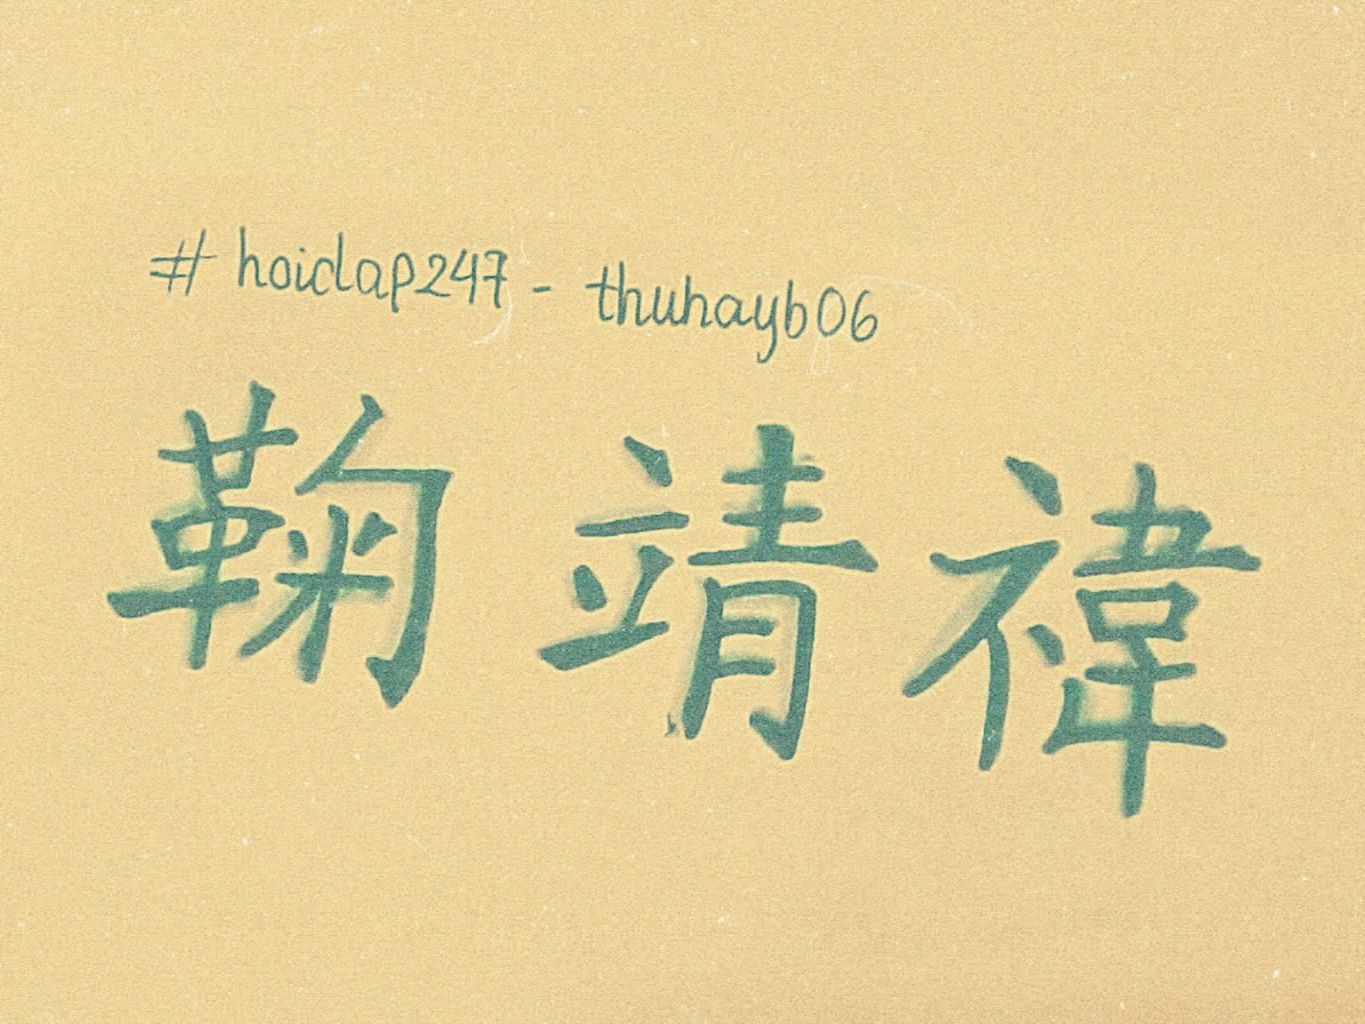 #hoidap247 - thuhayb06
鞠靖禕